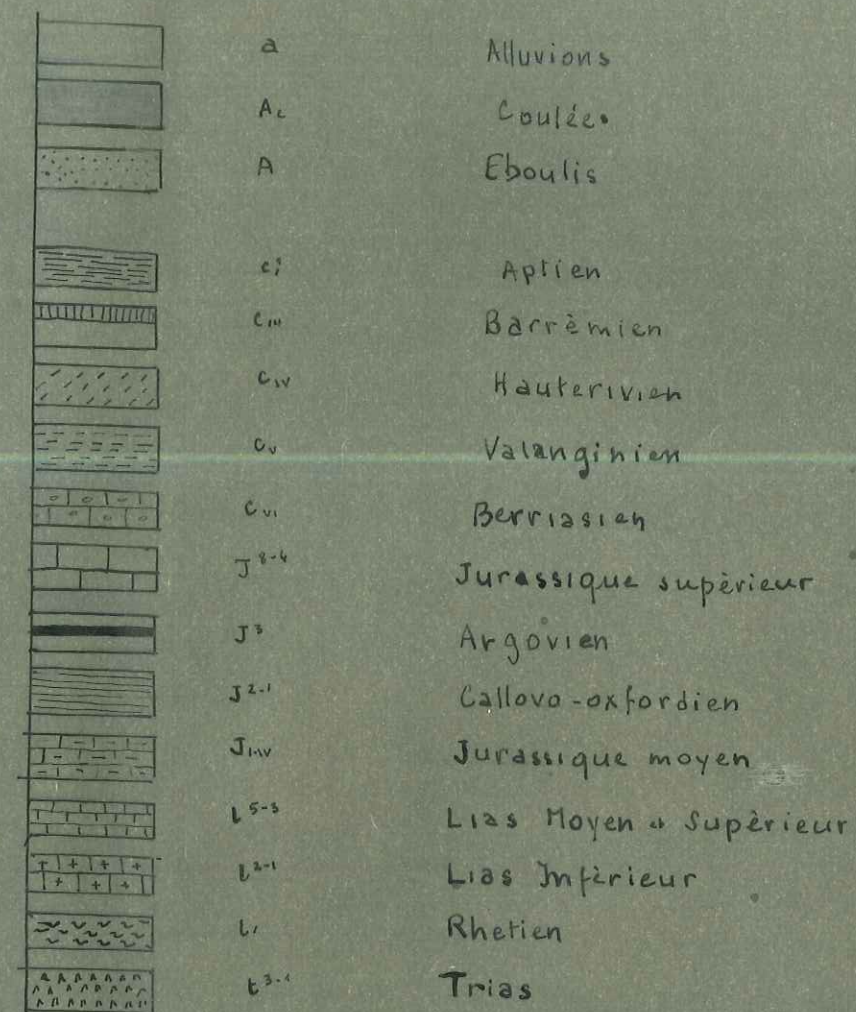 a Alluvions
A Eboulis
Aptien
Barrèmien
C IV Hauterivien
C V Valanginien
C VI Berriasien
J 8-4 Jurassique supèrieur
J 3 Argovien
J 2-1 Callovo-oxfordien
J I-IV Jurassique moyen
l 5-3 Lias Moyen Supèrieur
l 2-1 Lias Infèrieur
Rhetien
Trias